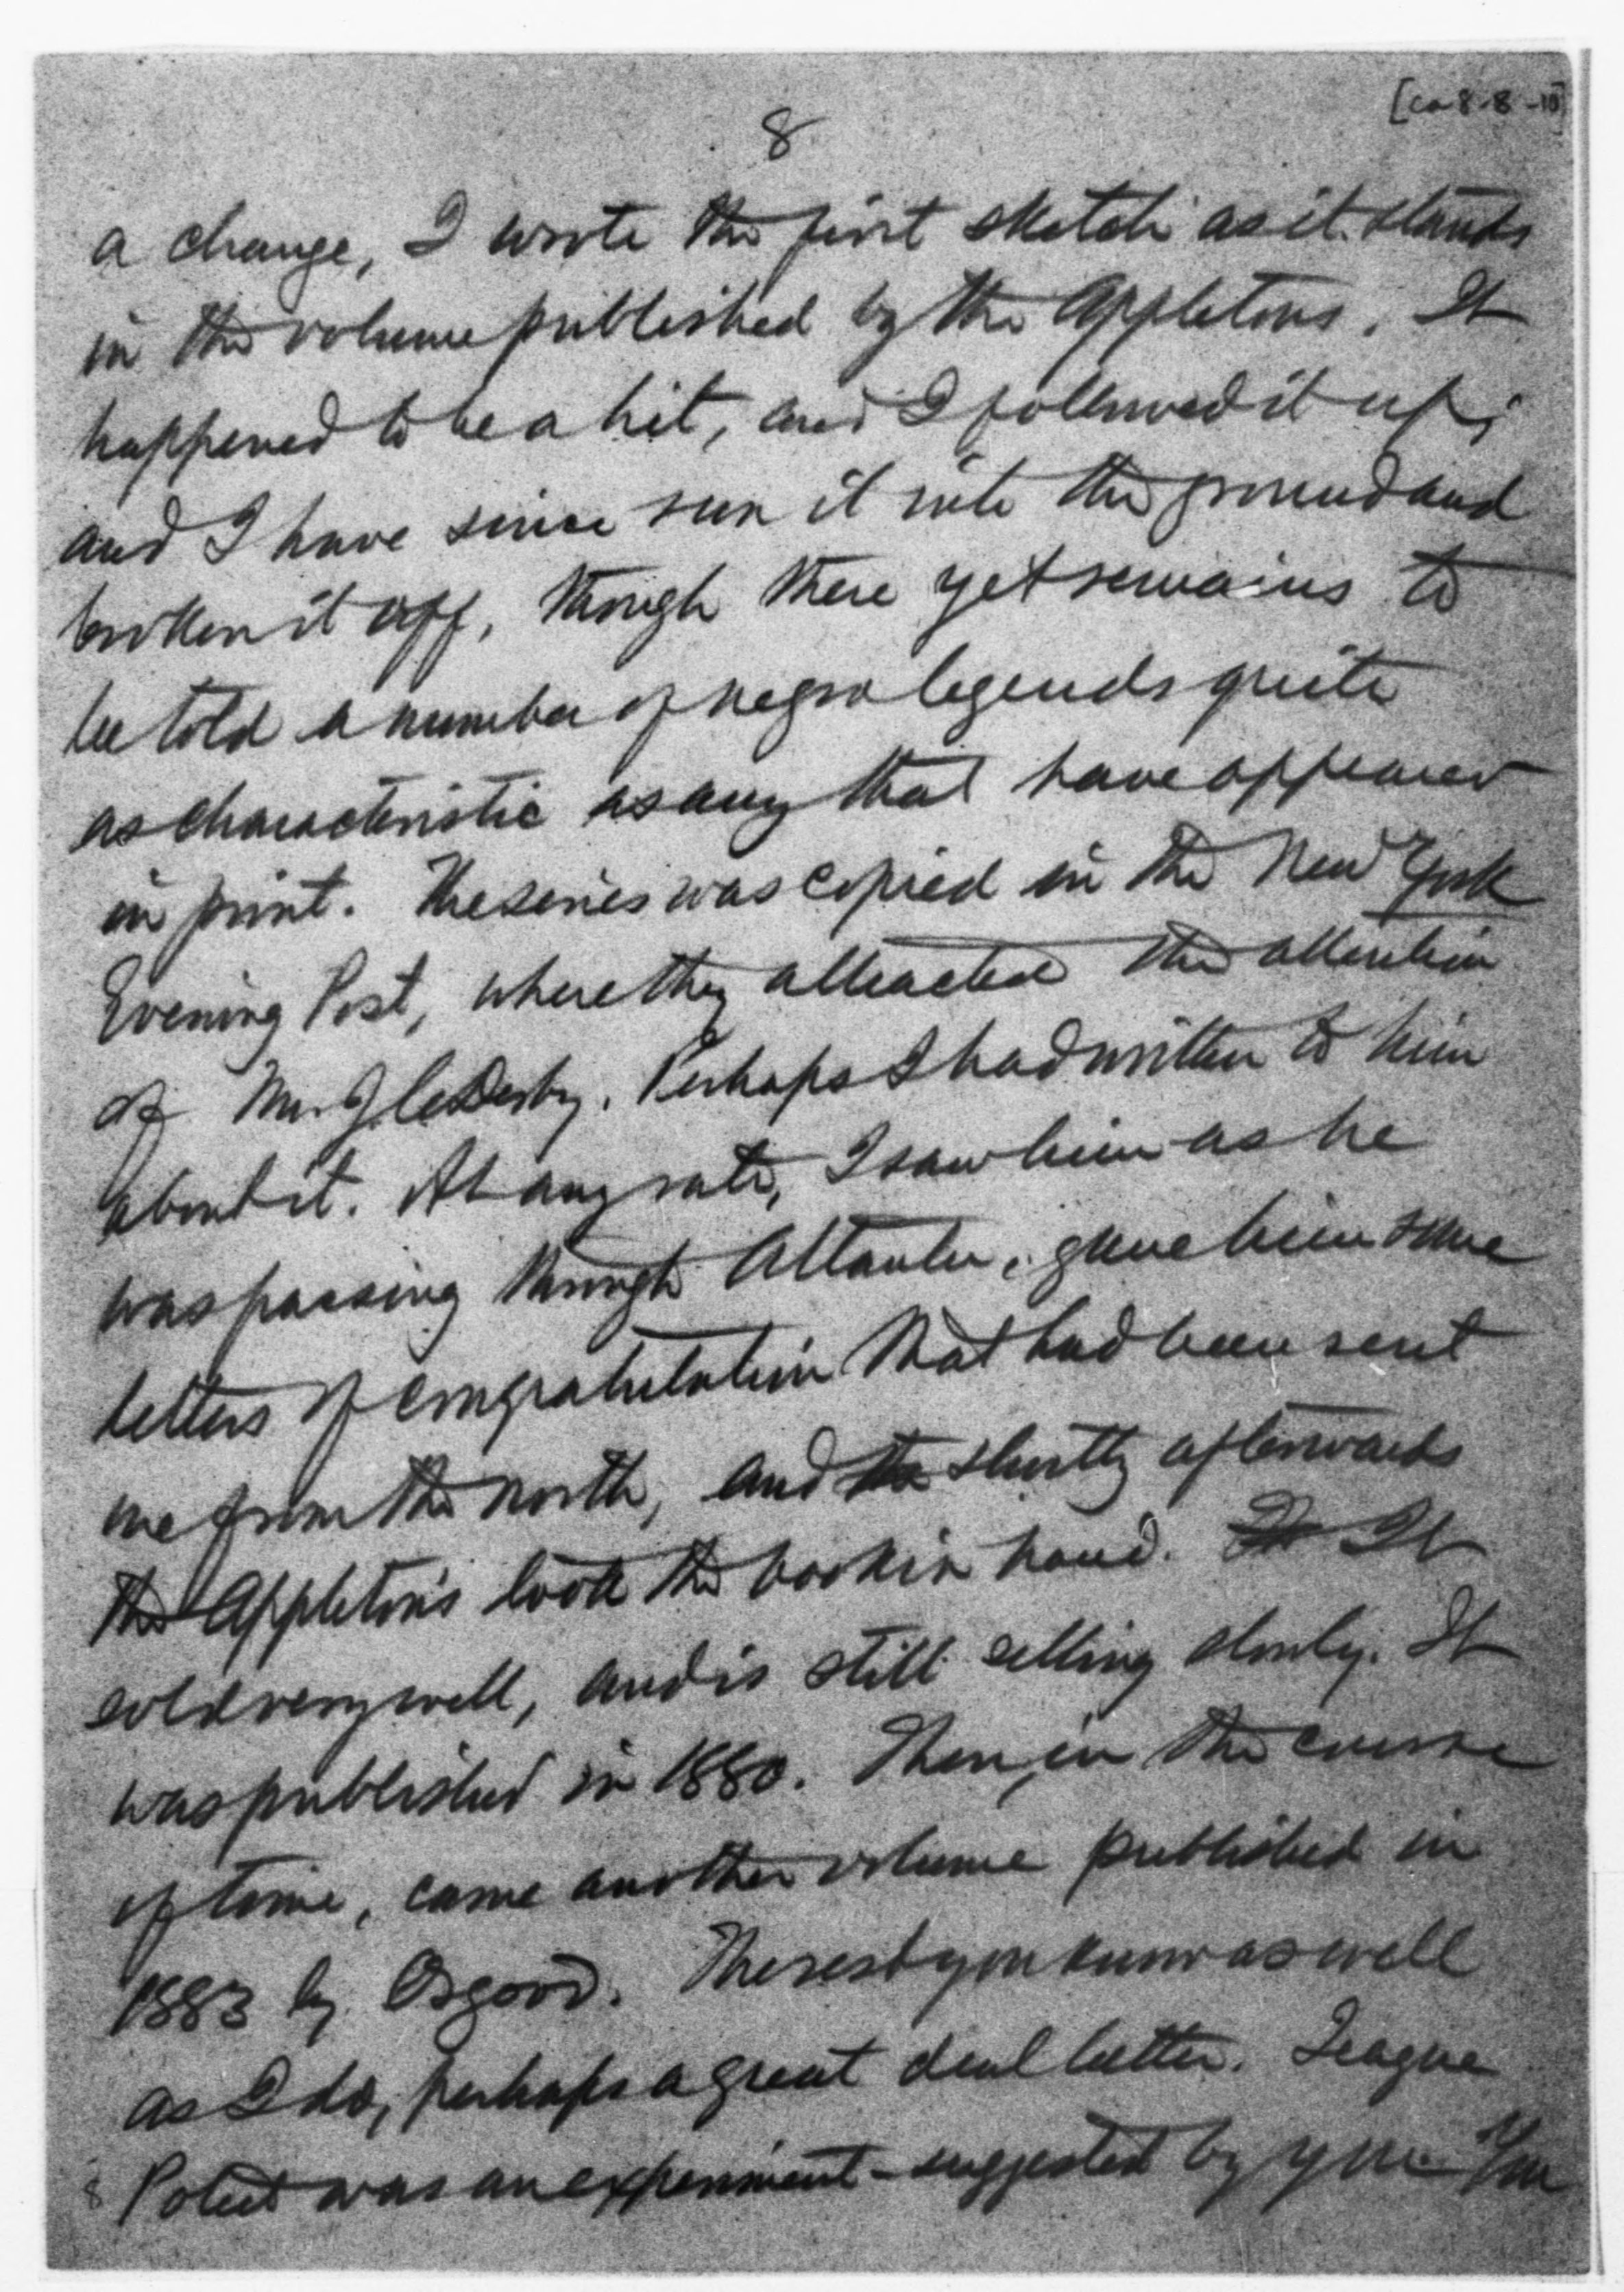 [ca 8-8-10]
8
a change, I wrote the first sketch as it stands
in the volume published by the Appletons. It
happened to be a hit, and I followed it up;
and I have since run it into the ground and
broken it off, though there yet remains to
be told a number of negro legends quite
as characteristic as any that have appeared
in print. The series was copied in the New York
Evening Post, where they attracted the attention
of Mr. J. C. Derby. Perhaps I had written to him
about it. At any rate, I saw him as he
was passing through Atlanta, gave him some
letters of congratulation that had been sent
me from the north, and shortly afterwards
the Appletons took the book in hand. It
sold very well, and is still selling slowly. It
was published in 1880. Then, in the course
of time, came another volume published in
1883 by Osgood. The rest you know as well
as I do, perhaps a great deal better. Teague
Poteet was an experiment - suggested by you. You
8